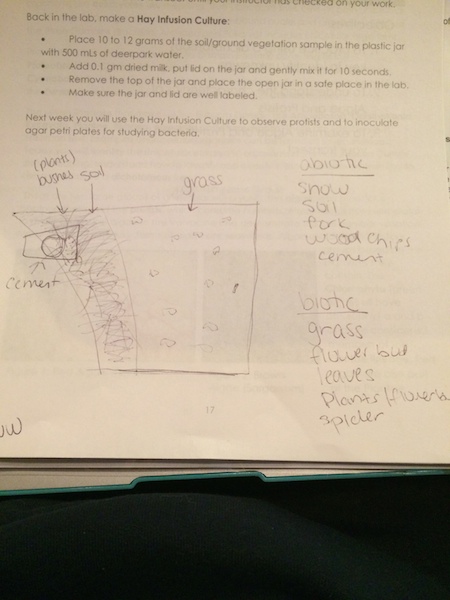 instructor has checked on your work.
Back in the lab, make a Hay Infusion Culture:
• Place 10 to 12 grams of the soil/ground vegetation sample in the plastic jar
with 500 mLs of deerpark water.
• Add 0.1 gm dried milk, put lid on the jar and gently mix it for 10 seconds.
• Remove the top of the jar and place the open jar in a safe place in the lab.
• Make sure the jar and lid are well labeled.
Next week you will use the Hay Infusion Culture to observe protists and to inoculate
agar petri plates for studying bacteria.
(plants)
bushes soil
grass
cement
abiotic
snow
soil
wood chips
cement
biotic
grass
flower bud
leaves
Plants/flowers
spider
17